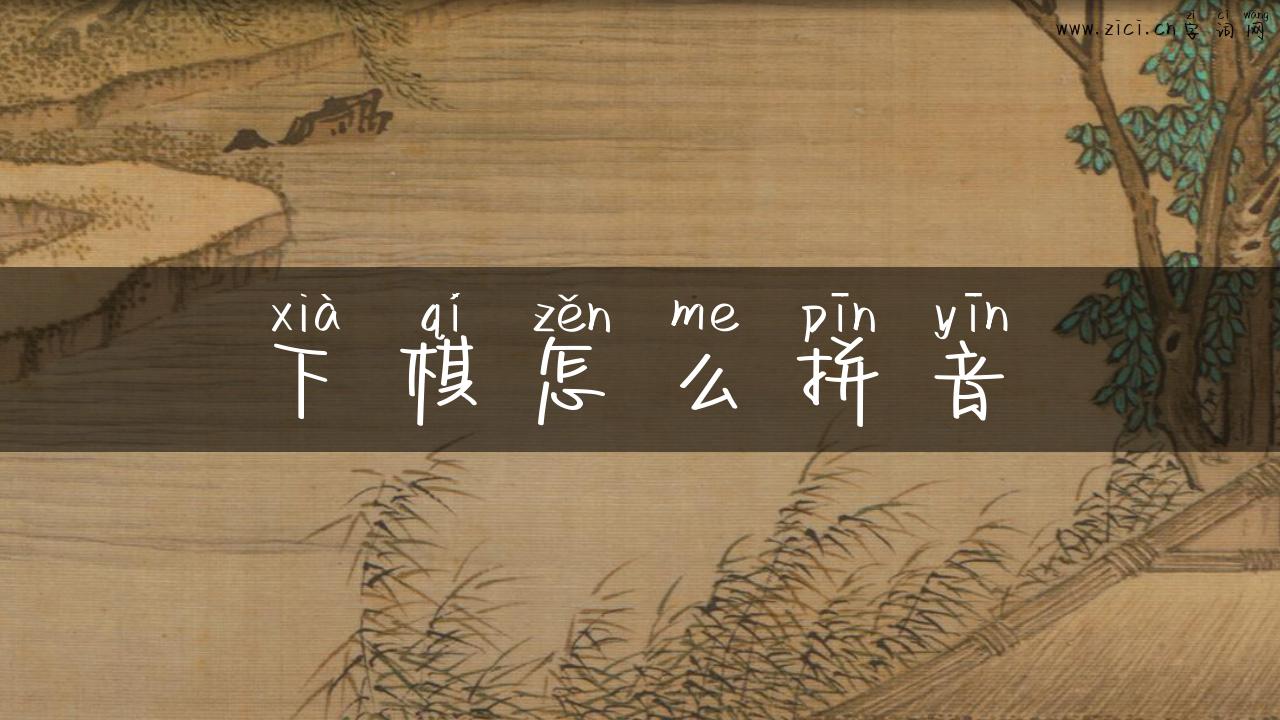 zì cí wǎng
www.zici.cn字词网
xià qí zěn me pīn yīn
下棋怎么拼音